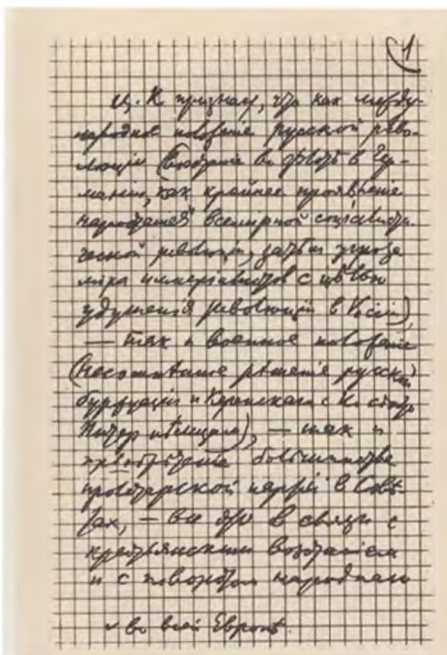 1
Ц. К. признает, что как между-
народное положение русской рево-
люции (восстание во флоте в Гер-
мании, как крайнее проявление
нарастания ✓ всемирной социалисти-
ческой революции, затем угроза
мира империалистов с целью
удушения революции в России),
— так и военное положение
(несомненное решение русской
буржуазии и Керенского с Ко сдать
Питер немцам), — так и
приобретение большинства
пролетарской партией в Сове-
тах, — все это в связи с
крестьянским восстанием
и с поворотом народного
✓ во всей Европе